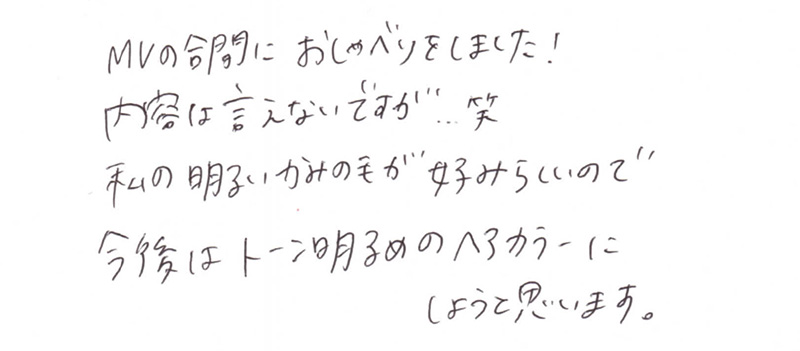 MVの合間に おしゃべりをしました!
内容は言えないですが…笑
私の明るいかみの毛が好みらしいので
今後はトーン明るめのヘアカラーに
しようと思います。